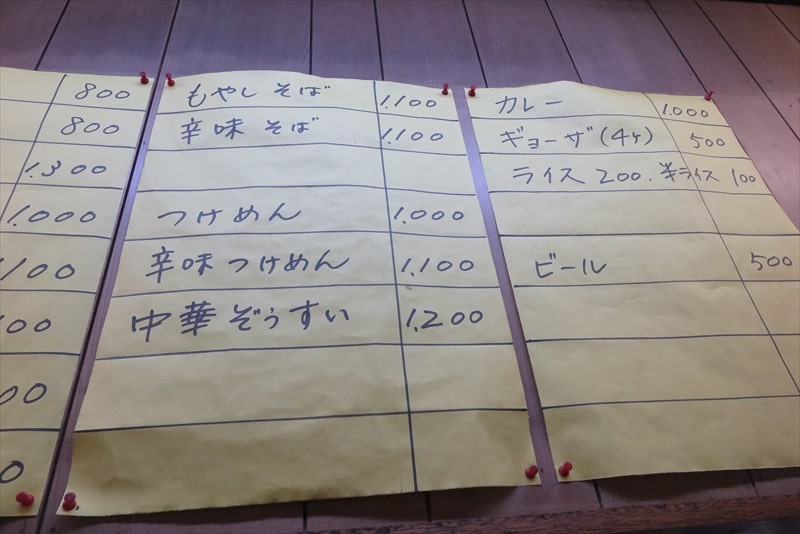 800
800
1,300
1,000
100
00
00
0
もやしそば 1,100
辛味そば 1,100
つけめん 1,000
辛味つけめん 1,100
中華ぞうすい 1,200
カレー 1,000
ギョーザ(4ヶ) 500
ライス 200. 半ライス 100
ビール 500